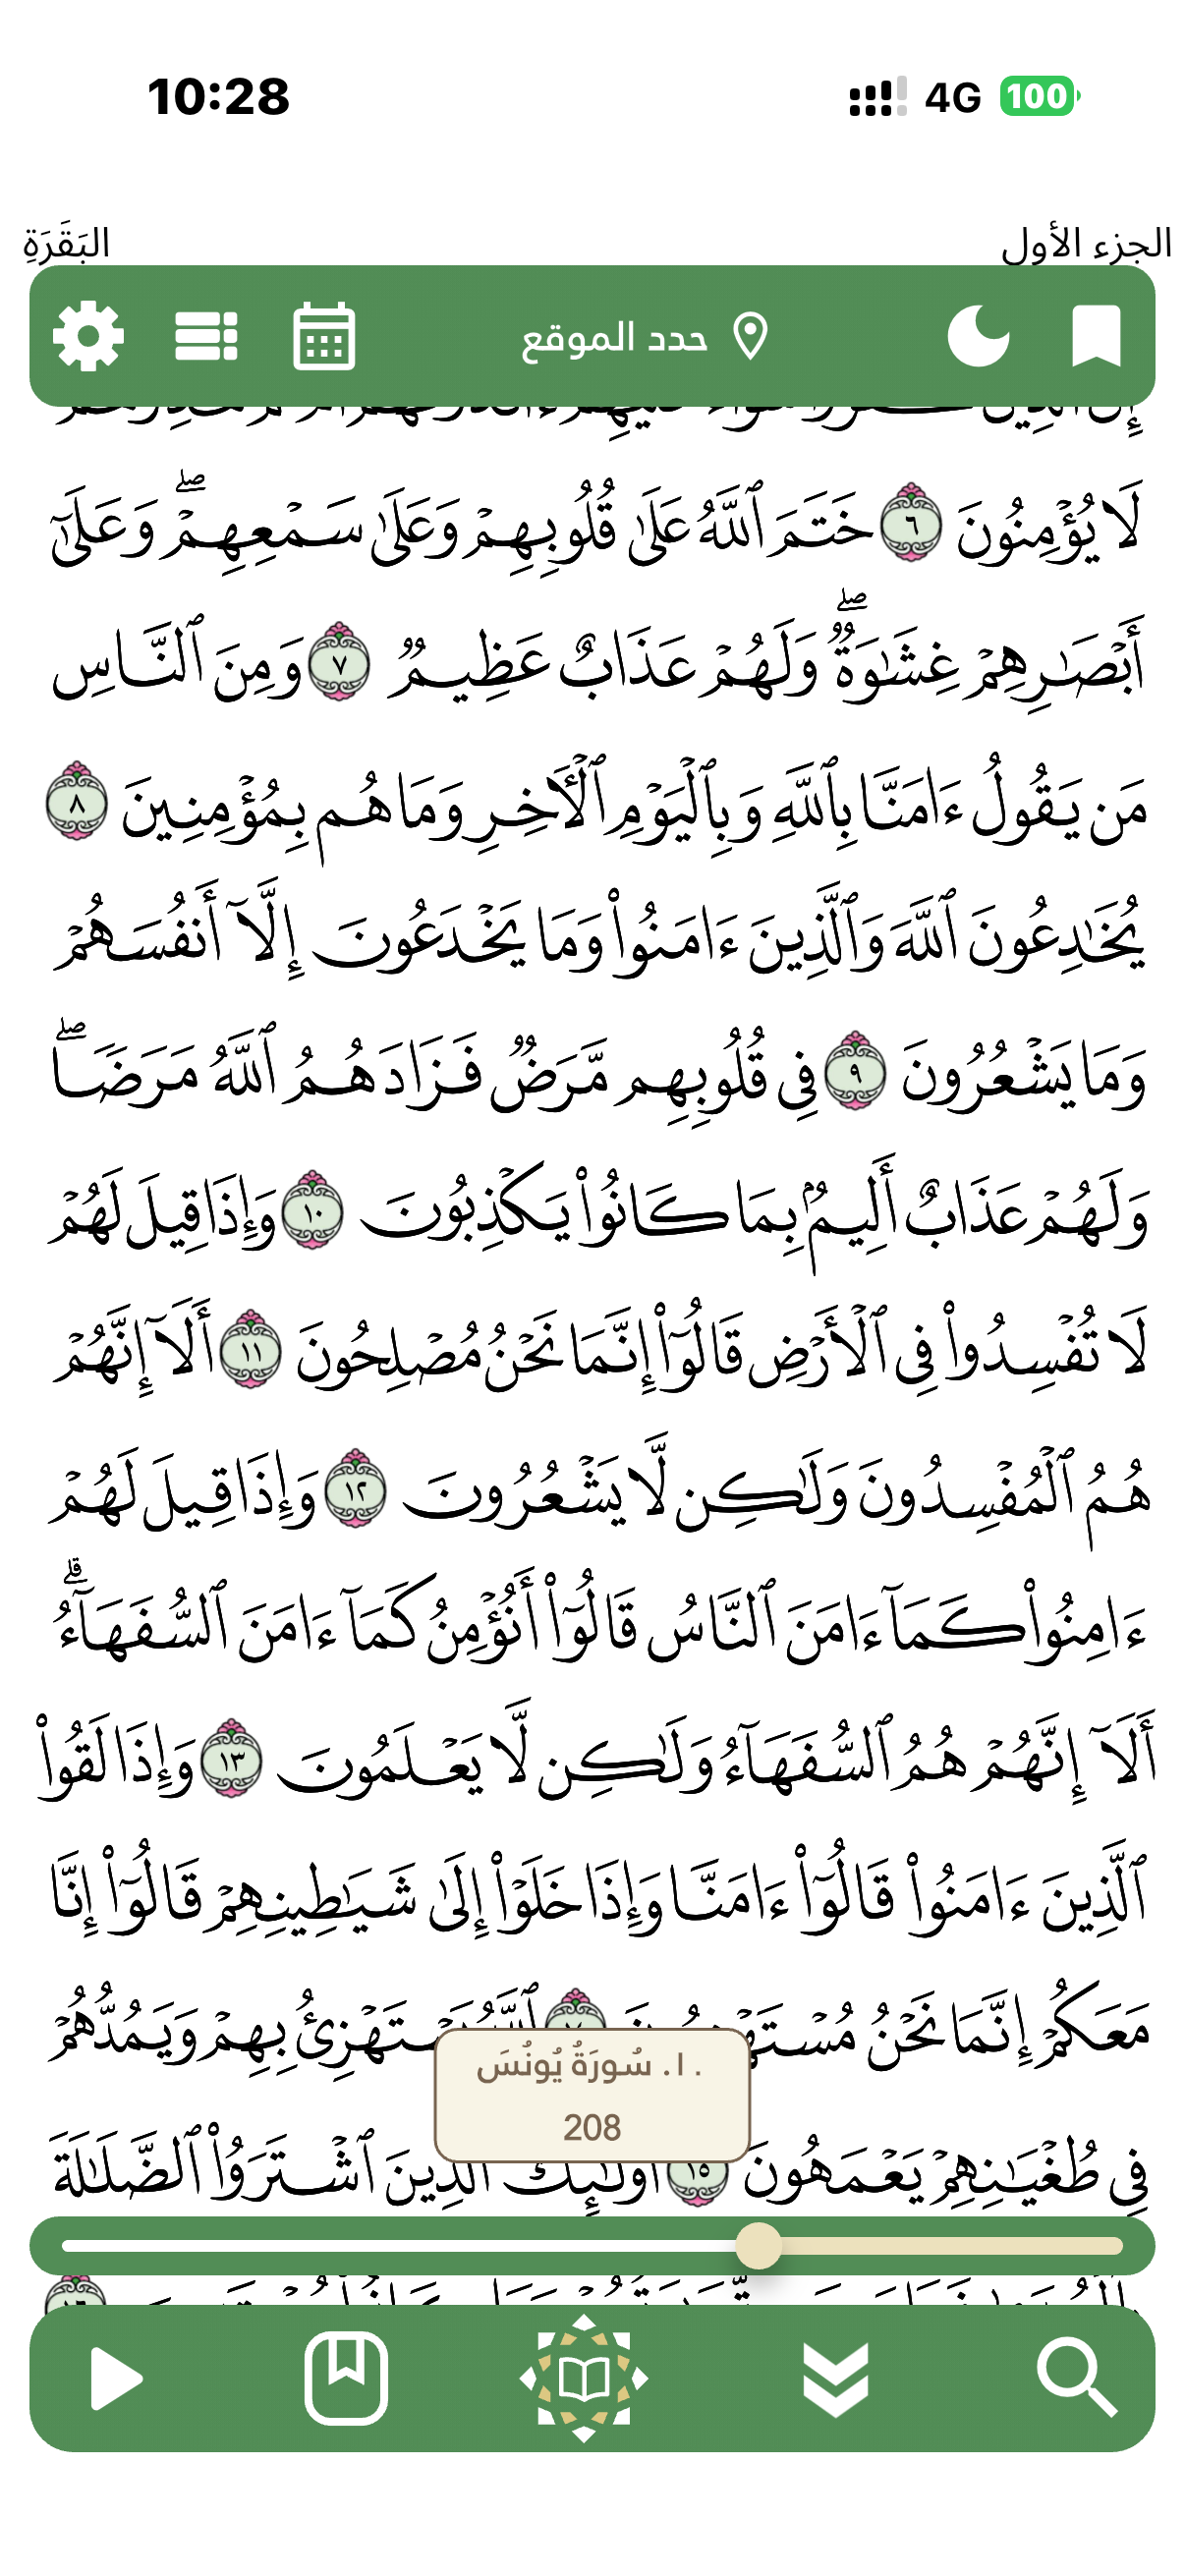 10:28
4G 100
الجزء الأول
البَقَرَةِ
حدد الموقع
لَا يُؤۡمِنُونَ ٦ خَتَمَ ٱللَّهُ عَلَىٰ قُلُوبِهِمۡ وَعَلَىٰ سَمۡعِهِمۡۖ وَعَلَىٰٓ
أَبۡصَٰرِهِمۡ غِشَٰوَةٞۖ وَلَهُمۡ عَذَابٌ عَظِيمٞ ٧ وَمِنَ ٱلنَّاسِ
مَن يَقُولُ ءَامَنَّا بِٱللَّهِ وَبِٱلۡيَوۡمِ ٱلۡأٓخِرِ وَمَا هُم بِمُؤۡمِنِينَ ٨
يُخَٰدِعُونَ ٱللَّهَ وَٱلَّذِينَ ءَامَنُواْ وَمَا يَخۡدَعُونَ إِلَّآ أَنفُسَهُمۡ
وَمَا يَشۡعُرُونَ ٩ فِي قُلُوبِهِم مَّرَضٞ فَزَادَهُمُ ٱللَّهُ مَرَضٗاۖ
وَلَهُمۡ عَذَابٌ أَلِيمُۢ بِمَا كَانُواْ يَكۡذِبُونَ ١٠ وَإِذَا قِيلَ لَهُمۡ
لَا تُفۡسِدُواْ فِي ٱلۡأَرۡضِ قَالُوٓاْ إِنَّمَا نَحۡنُ مُصۡلِحُونَ ١١ أَلَآ إِنَّهُمۡ
هُمُ ٱلۡمُفۡسِدُونَ وَلَٰكِن لَّا يَشۡعُرُونَ ١٢ وَإِذَا قِيلَ لَهُمۡ
ءَامِنُواْ كَمَآ ءَامَنَ ٱلنَّاسُ قَالُوٓاْ أَنُؤۡمِنُ كَمَآ ءَامَنَ ٱلسُّفَهَآءُۗ
أَلَآ إِنَّهُمۡ هُمُ ٱلسُّفَهَآءُ وَلَٰكِن لَّا يَعۡلَمُونَ ١٣ وَإِذَا لَقُواْ
ٱلَّذِينَ ءَامَنُواْ قَالُوٓاْ ءَامَنَّا وَإِذَا خَلَوۡاْ إِلَىٰ شَيَٰطِينِهِمۡ قَالُوٓاْ إِنَّا
مَعَكُمۡ إِنَّمَا نَحۡنُ بِهِمۡ وَيَمُدُّهُمۡ
١٠. سُورَةُ يُونُسَ
208
فِي طُغۡيَٰنِهِمۡ يَعۡمَهُونَ ١٥ ٱلَّذِينَ ٱشۡتَرَوُاْ ٱلضَّلَٰلَةَ